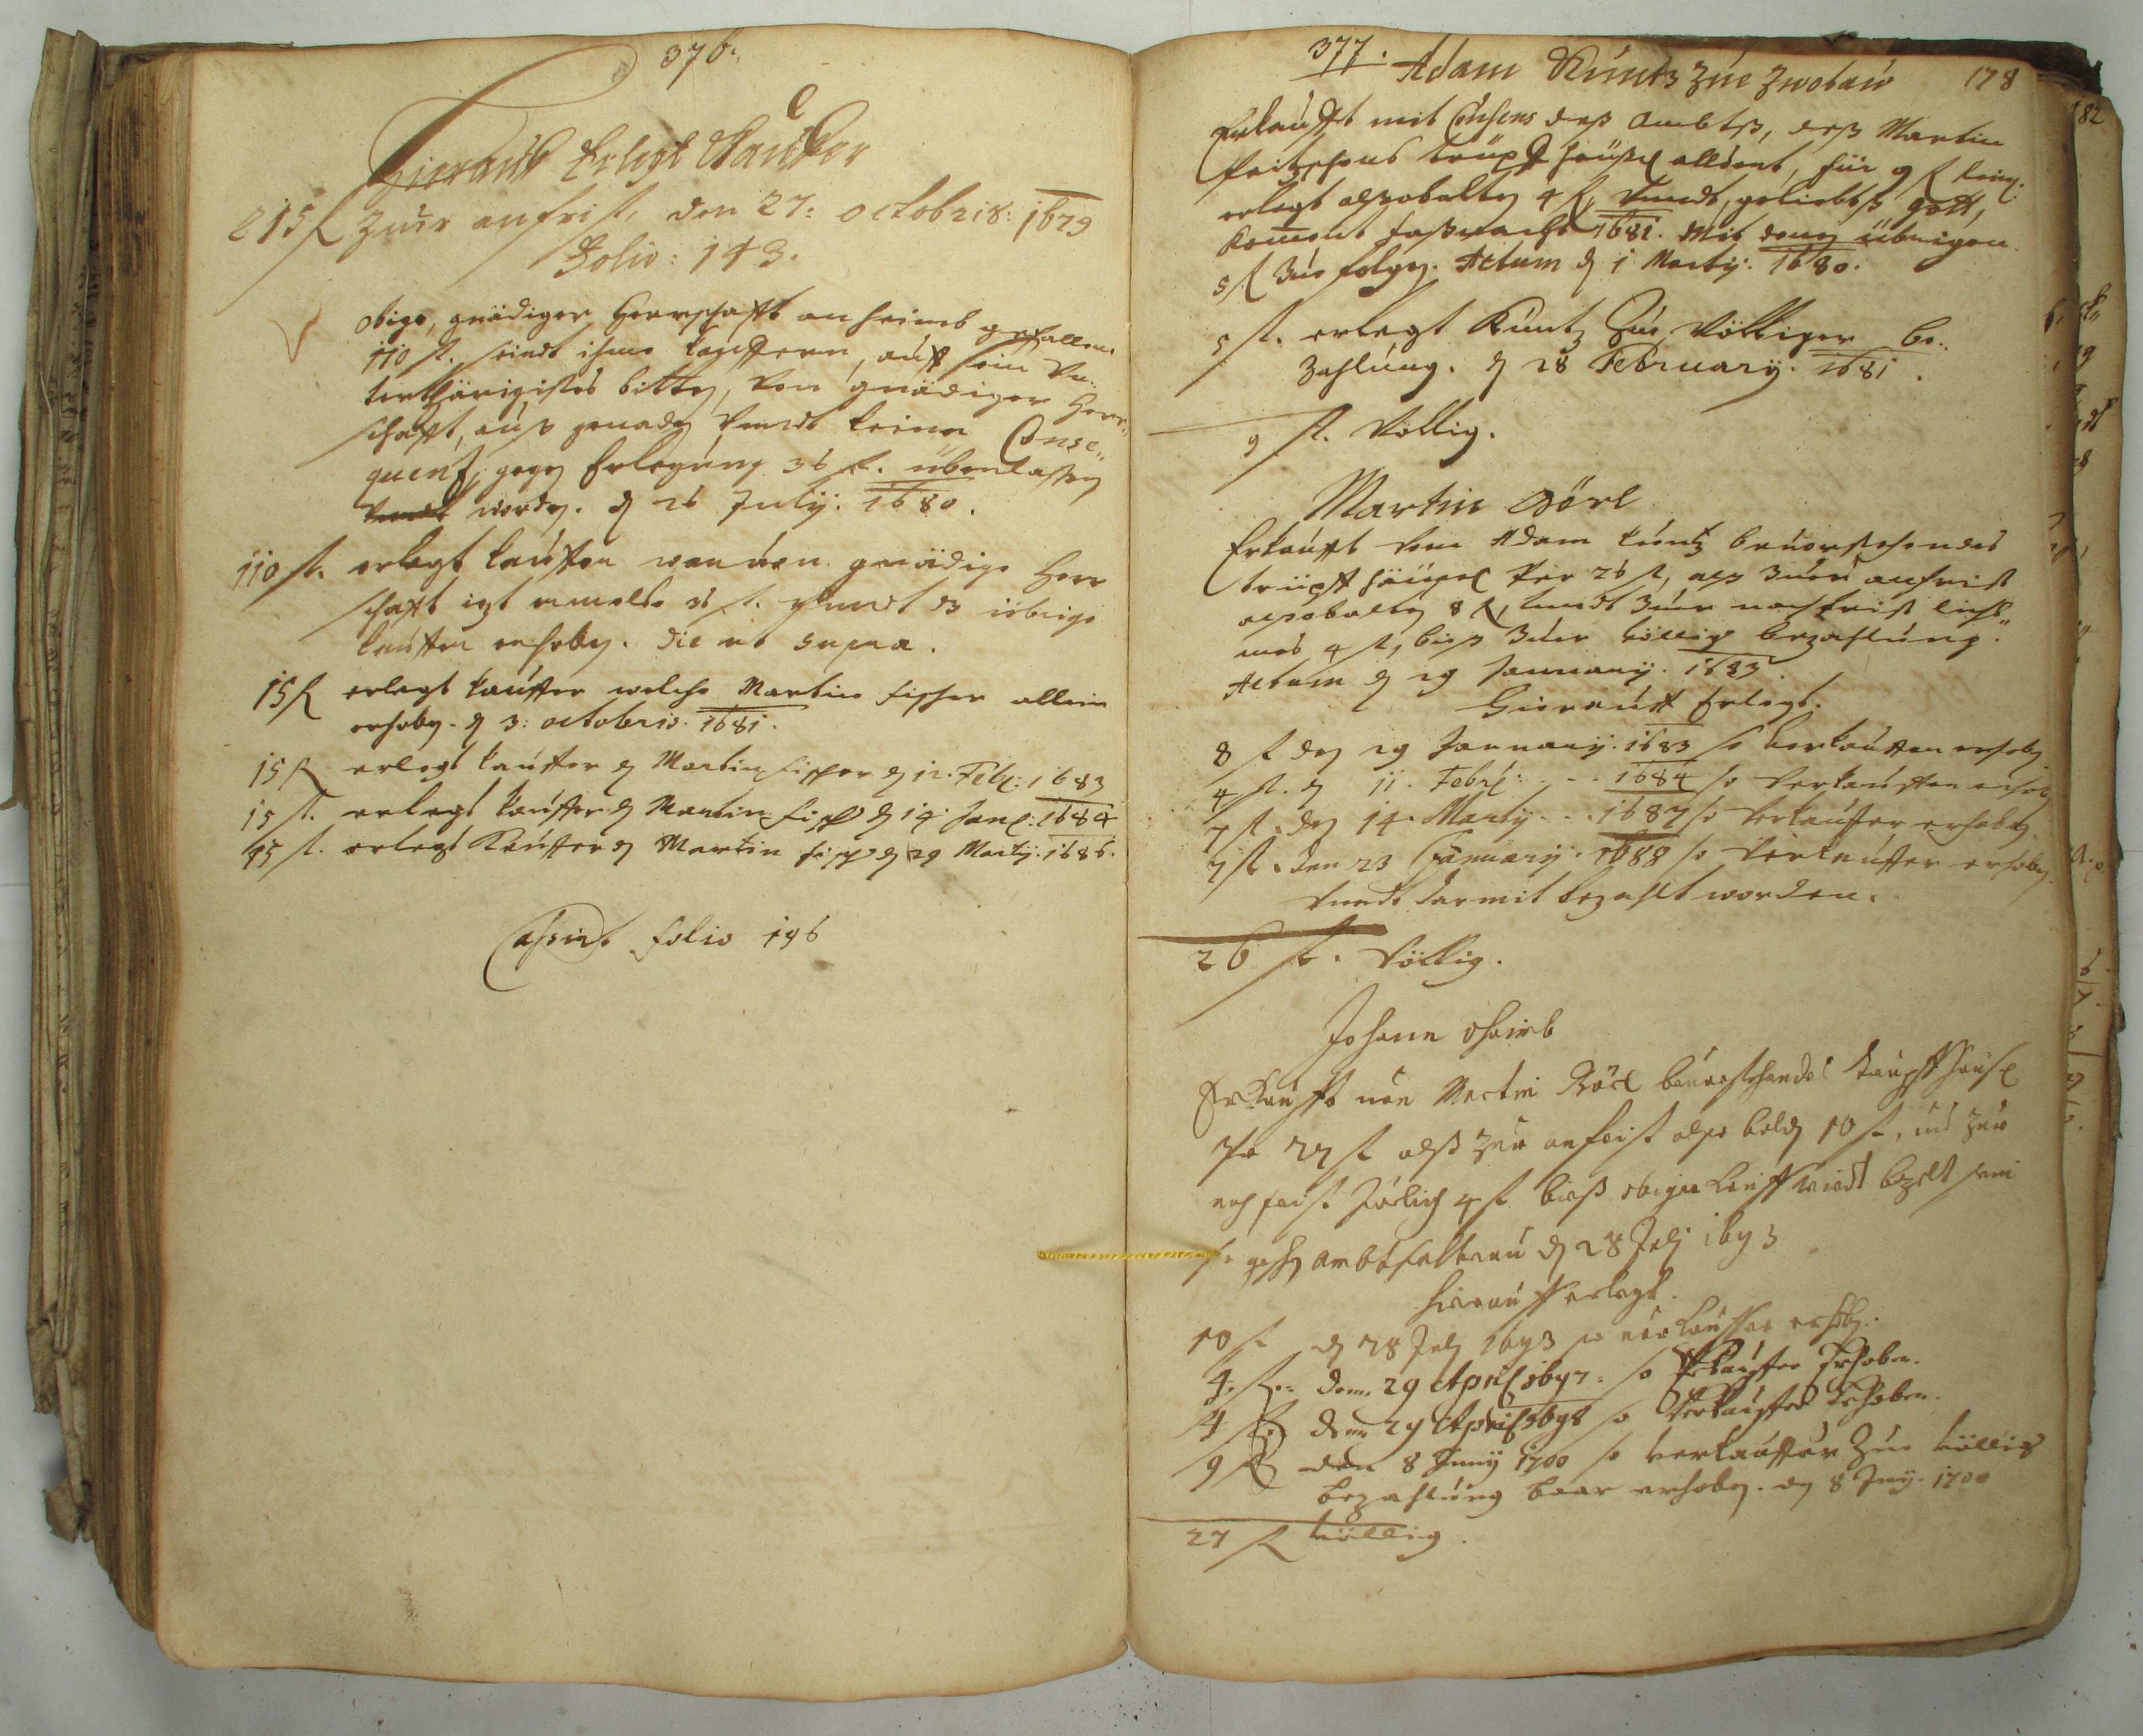 376.
Hierauf Erlegt Kauffer
215 f Zur anfrist, den 27: octobris: 1679
Folio: 143.
Obige, gnädiger Herrschafft anheimb gefallene
110 fl. seindt ihme Kauffern, auff sein Vn-
terthänigistes bitten, von gnädiger Herr-
schafft, auß genaden vnndt keiner Conse-
quenz, gegen Erlegung 36 fl. überlassen
worden. den 26 July. 1680.
110 fl. erlegt Kauffer gnädige Herr
schafft 36 fl. vnndt übrige
Kauffer erhoben. Die ut supra.
15 f erlegt Kauffer welche Martin Fischer allein
erhoben. den 3: octobris. 1681.
15 f erlegt Kauffer den Martin Fischer den 12. Feb: 1683
15 fl. erlegt Kauffer den Martin Fisch den 14 Jan: 1684
15 fl. erlegt Kauffer den Martin Fisch den 29 Marty: 1686.
folio 196
377. Adam Kuntz Zue Zwotaw 178
Erkaufft mit Consens deß Ambtß, deß Martin
trüpffhäußl alldort, für 9 f Rein.
erlegt alßobalten 4 f, vnndt, geliebtß gott,
Koment faßnacht 1681. Mit denen übrigen
5 f Zue folgen. Actum den 1 Marty: 1680.
5 fl. erlegt Kuntz Zue Völliger be-
Zahlung. den 28 February. 1681.
9 fl. Völlig.
Martin Dörl
Erkaufft vom Adam Kuntz beuorstehendes
trüpffhäußel Per 26 fl, alß Zuer anfrist
alßobalten 8 f, vnndt Zuer nachfrist liecht-
mes 4 fl, biß Zuer völlige bezahlung.
Actum den 29 January. 1683.
Hierauff Erlegt.
8 f den 29 January. 1683 so Verkauffer erhoben
4 fl. den 11. Febr: - - 1684 so Verkauffer erhob
7 fl. den 14. Marty - - 1687 so Verkauffer erhoben.
7 fl. den 23 January. 1688 so Verkauffer erhoben.
vnndt darmit bezahlt worden.
26 fl. Völlig.
Johann
Erkaufft von Martin Dörl beuorstehendes traupffheusl
Per 27 fl alß Zur anfrist alßo balden 10 fl, und Zur
nachfrist Järlich 4 fl biß obiger Kauff wirdt bezalt sein
so geschehen Ambt den 28 July 1693
Hierauff erlegt.
10 fl den 28 July 1693 so verkauffer erhoben.
4 fl. den 29 April 1697: so Verkauffer Erhoben.
4 fl. den 29 April 1698 so Verkauffer Erhoben.
9 fl den 8 Juny 1700 so verkauffer Zur völlig
bezahlung baar erhoben. den 8 Juny. 1700
27 fl völlig.